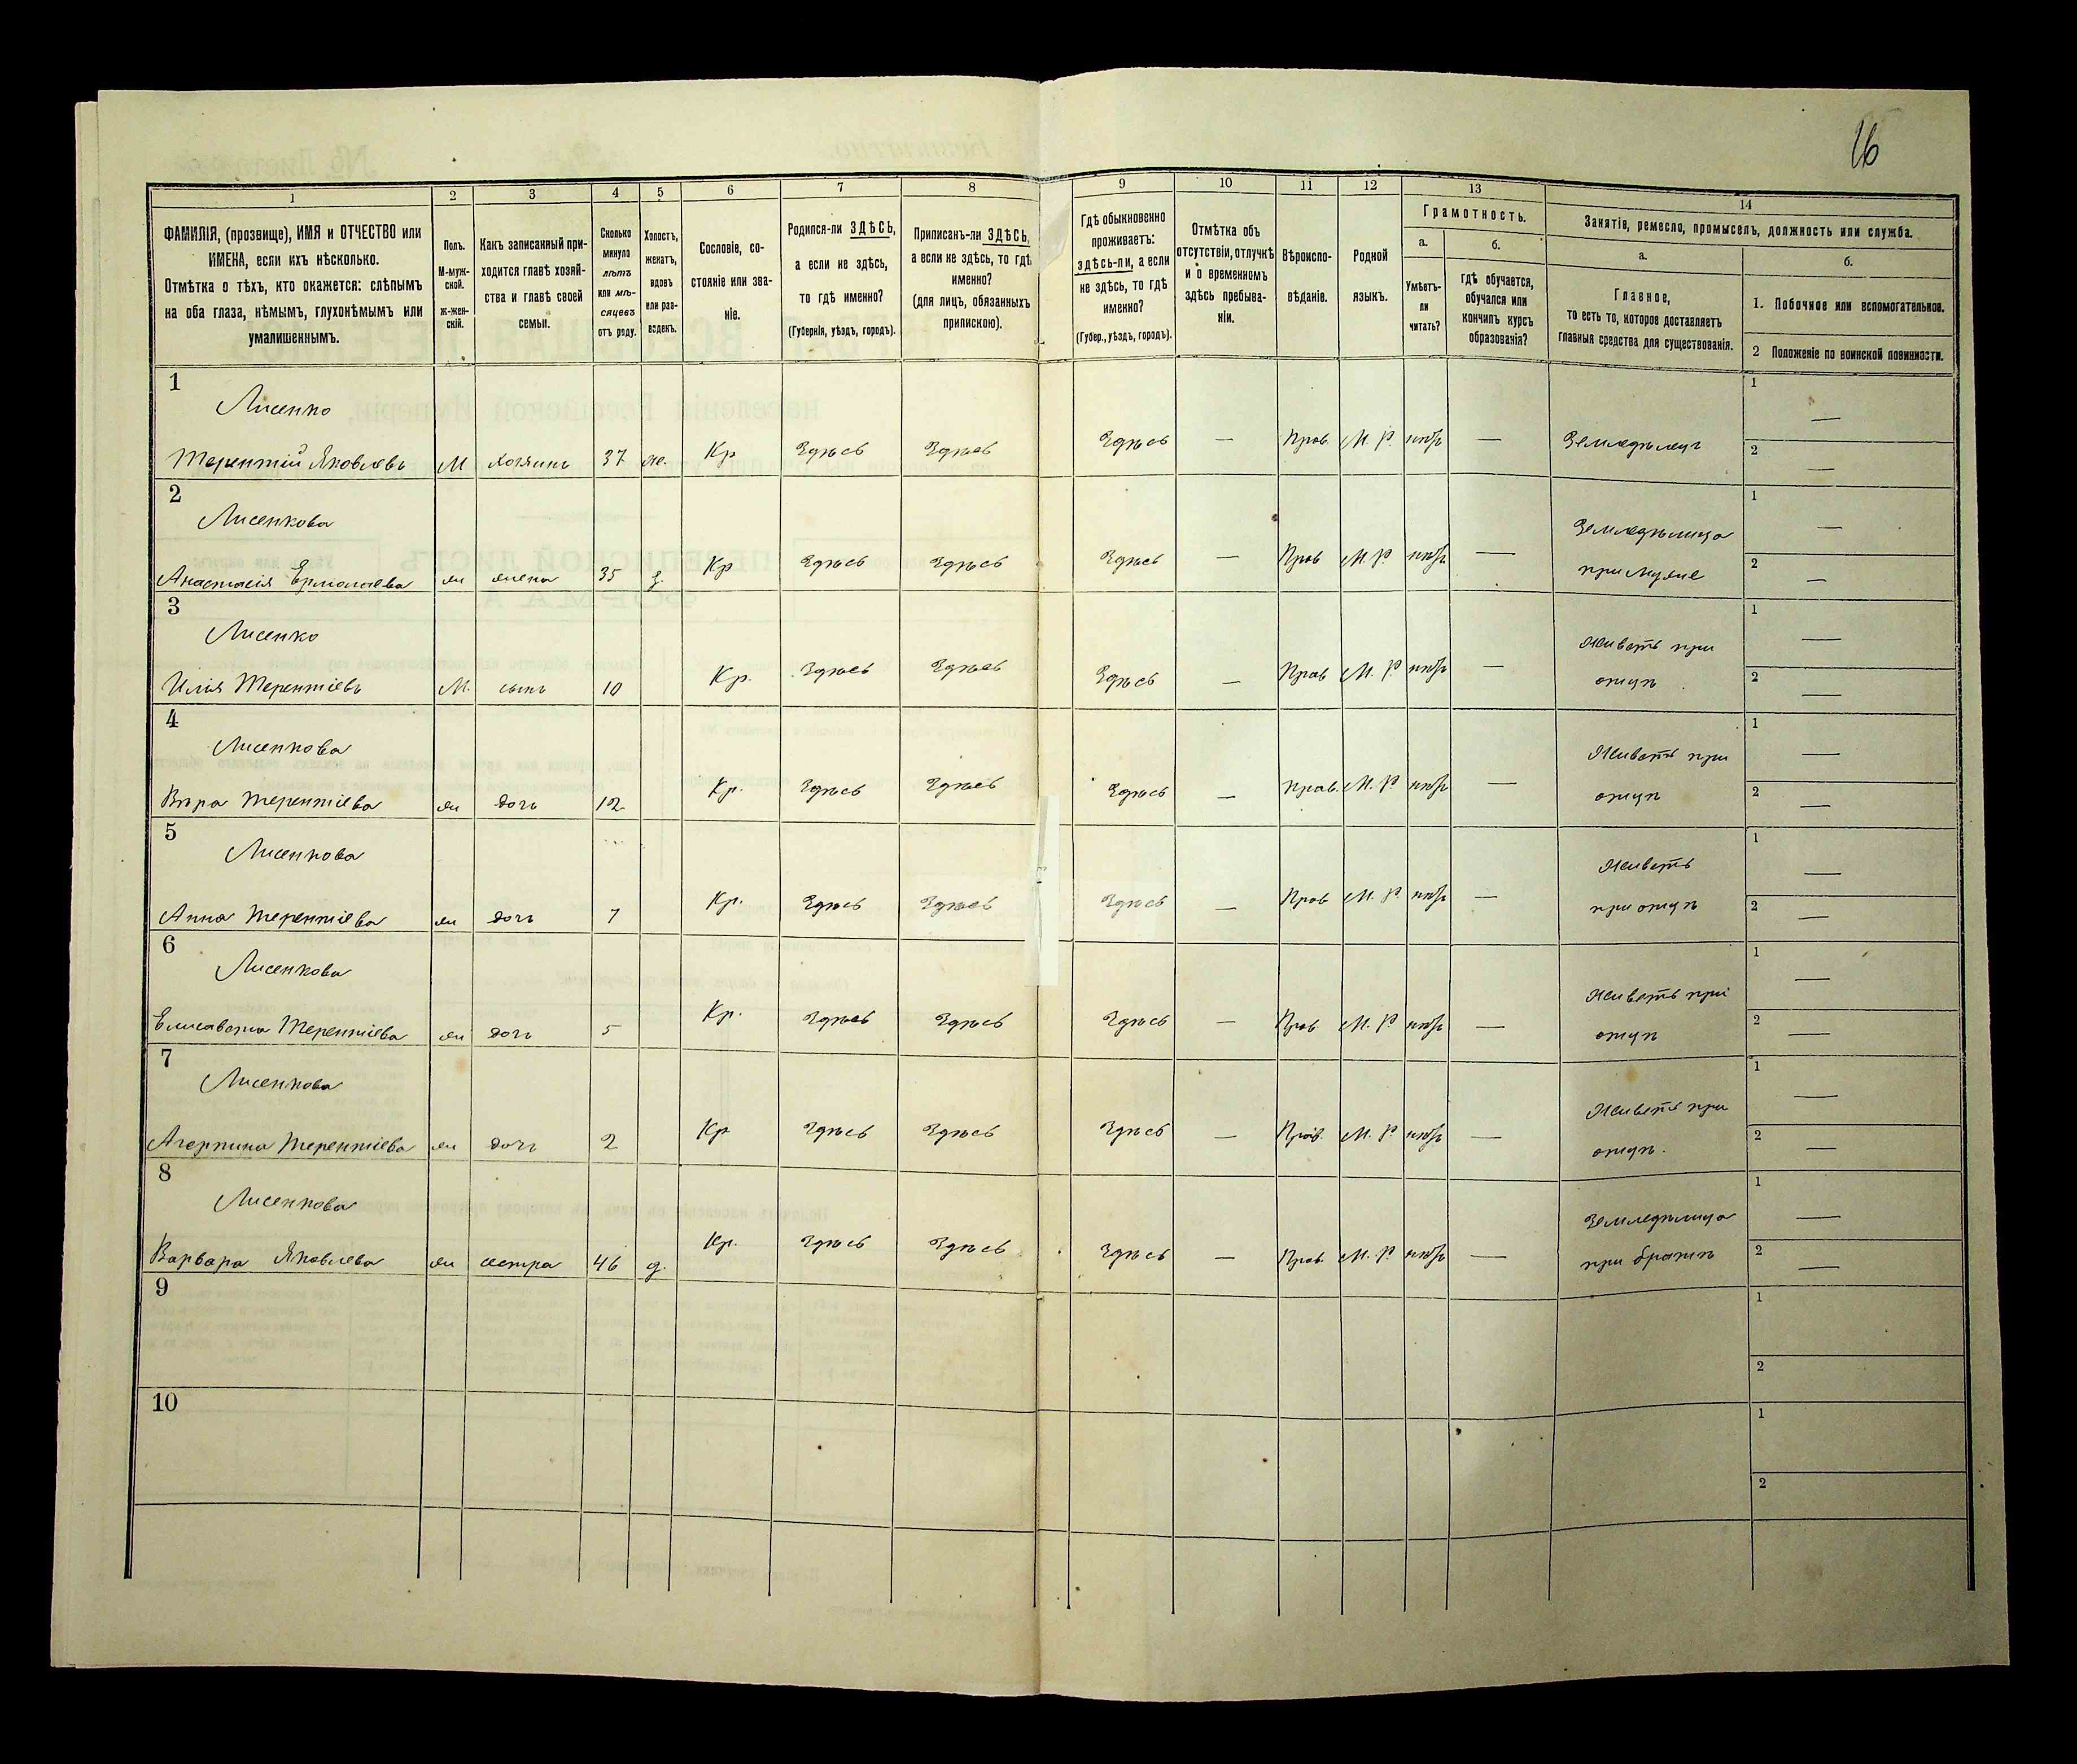 16
1
2
3
4
5
6
7
8
9
10
11
12
13
14
ФАМИЛІЯ, (прозвище), ИМЯ и ОТЧЕСТВО или
ИМЕНА, если ихъ нѣсколько.
Отмѣтка о тѣхъ, кто окажется: слѣпымъ
на оба глаза, нѣмымъ, глухонѣмымъ или
умалишеннымъ.
Полъ.
М-муж-
ской.
Ж-жен-
скій.
Какъ записанный при-
ходится главѣ хозяй-
ства и главѣ своей
семьи.
Сколько
минуло
лѣтъ
или мѣ-
сяцевъ
отъ роду.
Холостъ,
женатъ,
вдовъ
или раз-
веденъ.
Сословіе, со-
стояніе или зва-
ніе.
Родился-ли ЗДѢСЬ,
а если не здѣсь,
то гдѣ именно?
(Губернія, уѣздъ, городъ).
Приписанъ-ли ЗДѢСЬ,
а если не здѣсь, то гдѣ
именно?
(для лицъ, обязанныхъ
припискою).
Гдѣ обыкновенно
проживаетъ:
здѣсь-ли, а если
не здѣсь, то гдѣ
именно?
(Губер., уѣздъ, городъ).
Отмѣтка объ
отсутствіи, отлучкѣ
и о временномъ
здѣсь пребыва-
ніи.
Вѣроиспо-
вѣданіе.
Родной
языкъ.
Грамотность.
а.
Умѣетъ-
ли
читать?
б.
Гдѣ обучается,
обучался или
кончилъ курсъ
образованія?
Занятія, ремесло, промыселъ, должность или служба.
а.
Главное,
то есть то, которое доставляетъ
главныя средства для существованія.
б.
1. Побочное или вспомогательное.
2 Положеніе по воинской повинности.
1
Лисенко
Терентій Яковлевъ М хозяинъ 37 ж. Кр Здѣсь Здѣсь Здѣсь — Прав М. Р. нѣтъ — Земледѣлецъ
1 —
2 —
2
Лисенкова
Анастасія Ермолаева ж жена 35 з. Кр Здѣсь Здѣсь Здѣсь — Прав М. Р. нѣтъ — Земледѣлица
при мужѣ
1 —
2 —
3
Лисенко
Илія Терентіевъ М. сынъ 10 Кр. Здѣсь Здѣсь Здѣсь — Прав М. Р нѣтъ — Живетъ при
отцѣ
1 —
2 —
4
Лисенкова
Вѣра Терентіева ж дочь 12 Кр. Здѣсь Здѣсь Здѣсь — Прав. М. Р нѣтъ — Живетъ при
отцѣ
1 —
2 —
5
Лисенкова
Анна Терентіева ж дочь 7 Кр. Здѣсь Здѣсь Здѣсь — Прав М. Р. нѣтъ — Живетъ
при отцѣ
1 —
2 —
6
Лисенкова
Елисавета Терентіева ж дочь 5 Кр. Здѣсь Здѣсь Здѣсь — Прав. М. Р. нѣтъ — Живетъ при
отцѣ
1 —
2 —
7
Лисенкова
Агерпина Терентіева ж дочь 2 Кр Здѣсь Здѣсь Здѣсь — Прав. М. Р. нѣтъ — Живетъ при
отцѣ.
1 —
2 —
8
Лисенкова
Варвара Яковлева ж сестра 46 д. Кр. Здѣсь Здѣсь Здѣсь — Прав. М. Р. нѣтъ — Земледѣлица
при братѣ
1 —
2 —
9
1
2
10
1
2